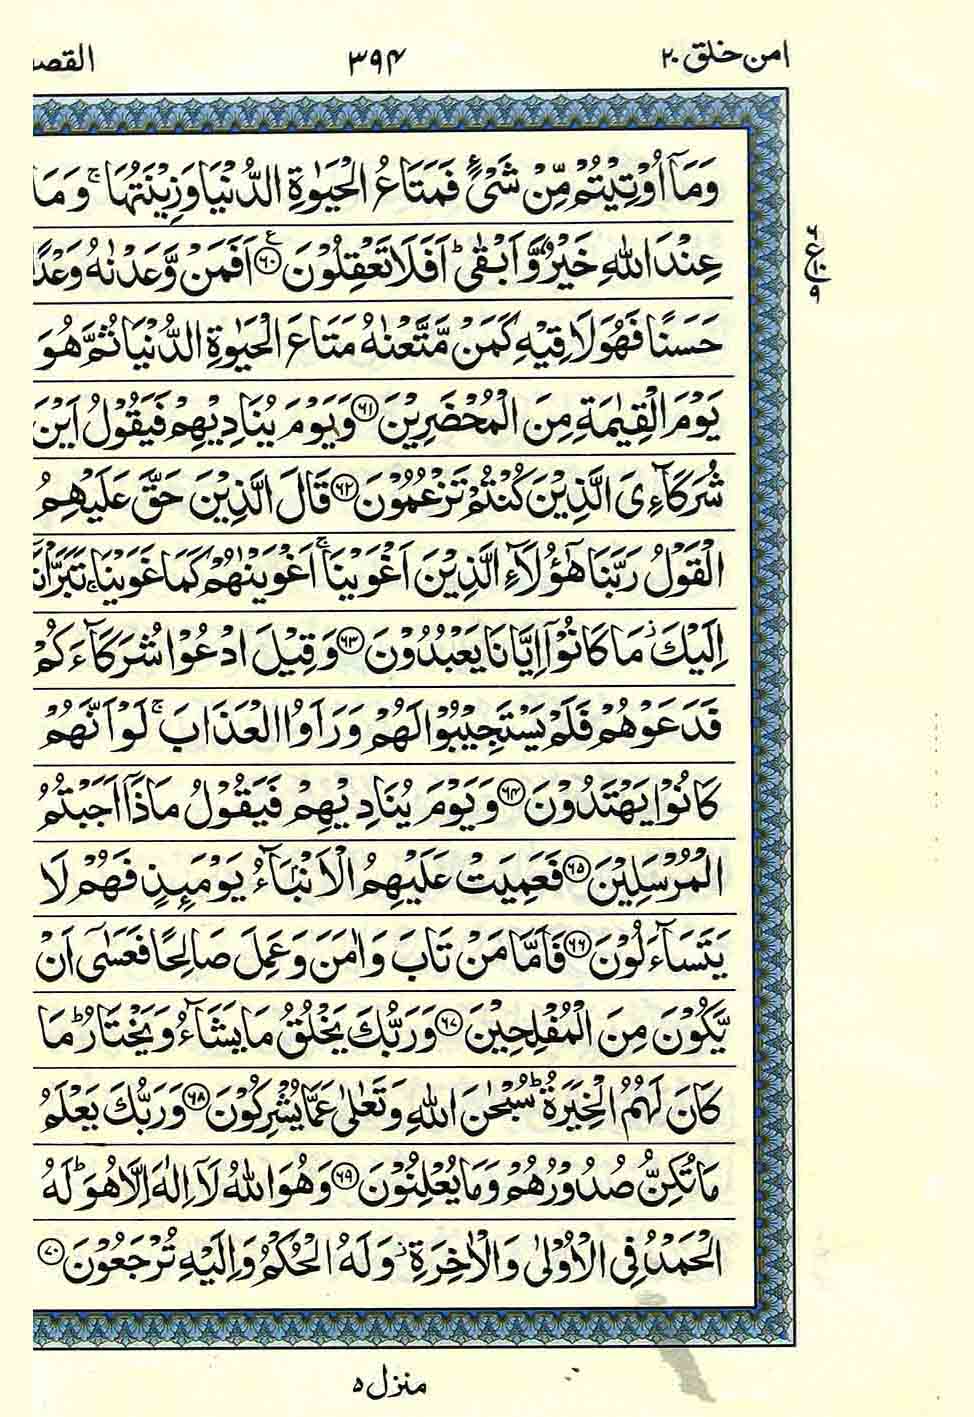 امن خلق ۲۰ ۳۹۴ القص
وَمَآ اُوْتِيْتُمْ مِّنْ شَىْءٍ فَمَتَاعُ الْحَيٰوةِ الدُّنْيَا وَزِيْنَتُهَا ۚ وَمَا
عِنْدَ اللّٰهِ خَيْرٌ وَّاَبْقٰى ؕ اَفَلَا تَعْقِلُوْنَ ﴿۶۰﴾ ع اَفَمَنْ وَّعَدْنٰهُ وَعْدًا
۶ ع ۱۰ ۹
حَسَنًا فَهُوَ لَاقِيْهِ كَمَنْ مَّتَّعْنٰهُ مَتَاعَ الْحَيٰوةِ الدُّنْيَا ثُمَّ هُوَ
يَوْمَ الْقِيٰمَةِ مِنَ الْمُحْضَرِيْنَ ﴿۶۱﴾ وَيَوْمَ يُنَادِيْهِمْ فَيَقُوْلُ اَيْنَ
شُرَكَآءِىَ الَّذِيْنَ كُنْتُمْ تَزْعُمُوْنَ ﴿۶۲﴾ قَالَ الَّذِيْنَ حَقَّ عَلَيْهِمُ
الْقَوْلُ رَبَّنَا هٰٓؤُلَآءِ الَّذِيْنَ اَغْوَيْنَا ۚ اَغْوَيْنٰهُمْ كَمَا غَوَيْنَا ۚ تَبَرَّاْنَا
اِلَيْكَ ؗ مَا كَانُوْۤا اِيَّانَا يَعْبُدُوْنَ ﴿۶۳﴾ وَقِيْلَ ادْعُوْا شُرَكَآءَكُمْ
فَدَعَوْهُمْ فَلَمْ يَسْتَجِيْبُوْا لَهُمْ وَرَاَوُا الْعَذَابَ ۚ لَوْ اَنَّهُمْ
كَانُوْا يَهْتَدُوْنَ ﴿۶۴﴾ وَيَوْمَ يُنَادِيْهِمْ فَيَقُوْلُ مَاذَآ اَجَبْتُمُ
الْمُرْسَلِيْنَ ﴿۶۵﴾ فَعَمِيَتْ عَلَيْهِمُ الْاَنْۢبَآءُ يَوْمَئِذٍ فَهُمْ لَا
يَتَسَآءَلُوْنَ ﴿۶۶﴾ فَاَمَّا مَنْ تَابَ وَاٰمَنَ وَعَمِلَ صَالِحًا فَعَسٰٓى اَنْ
يَّكُوْنَ مِنَ الْمُفْلِحِيْنَ ﴿۶۷﴾ وَرَبُّكَ يَخْلُقُ مَا يَشَآءُ وَيَخْتَارُ ؕ مَا
كَانَ لَهُمُ الْخِيَرَةُ ؕ سُبْحٰنَ اللّٰهِ وَتَعٰلٰى عَمَّا يُشْرِكُوْنَ ﴿۶۸﴾ وَرَبُّكَ يَعْلَمُ
مَا تُكِنُّ صُدُوْرُهُمْ وَمَا يُعْلِنُوْنَ ﴿۶۹﴾ وَهُوَ اللّٰهُ لَآ اِلٰهَ اِلَّا هُوَ ؕ لَهُ
الْحَمْدُ فِى الْاُوْلٰى وَالْاٰخِرَةِ ؗ وَلَهُ الْحُكْمُ وَاِلَيْهِ تُرْجَعُوْنَ ﴿۷۰﴾
منزل ۵